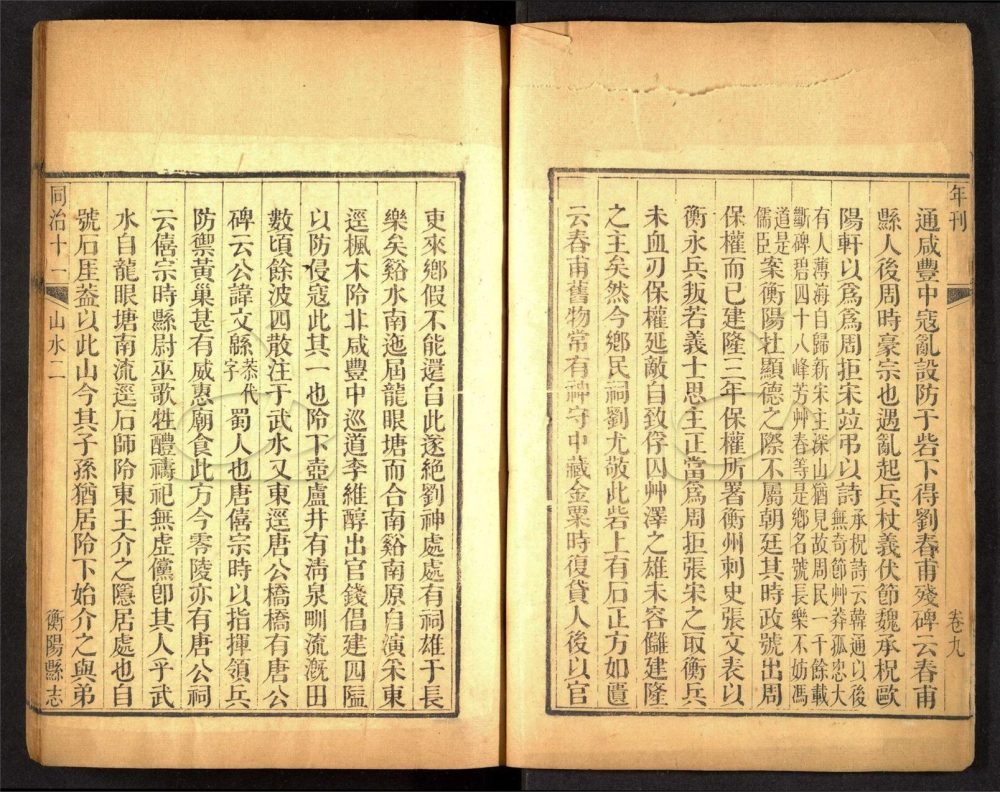 年刊
卷九
通咸豐中寇亂設防于砦下得劉春甫殘碑云春甫
縣人後周時豪宗也遇亂起兵杖義伏節魏承柷歐
陽軒以為為周拒宋竝弔以詩承柷詩云韓通以後
無奇節艸莽孤忠大
有人薄海自歸新宋主深山猶見故周民一千餘載
斷碑碧四十八峰芳艸春等是鄉名號長樂不妨馮
道是
儒臣
案衡陽杜顯德之際不屬朝廷其時政號出周
保權而已建隆三年保權所署衡州刺史張文表以
衡永兵叛若義士思主正當為周拒張宋之取衡兵
未血刃保權延敵自致俘囚艸澤之雄未容讎建隆
之主矣然今鄉民祠劉尤敬此砦上有石正方如匱
云春甫舊物常有神守中藏金粟時復貸人後以官
吏來鄉假不能還自此遂絕劉神處處有祠雄于長
樂矣谿水南迤屆龍眼塘而合南谿南原自演東
逕楓木阾非咸豐中巡道李維醇出官錢倡建四隘
以防侵寇此其一也阾下壺盧井有清泉甽流溉田
數頃餘波四散注于武水又東逕唐公橋橋有唐公
碑云公諱文繇代字蜀人也唐僖宗時以指揮領兵
防禦黃巢甚有威惠廟食此方今零陵亦有唐公祠
云僖宗時縣尉巫歌牲醴禱祀無虛儻卽其人乎武
水自龍眼塘南流逕石師阾東王介之隱居處也自
號石厓葢以此山今其子孫猶居阾下始介之與弟
同治十一
山水二
衡陽縣志